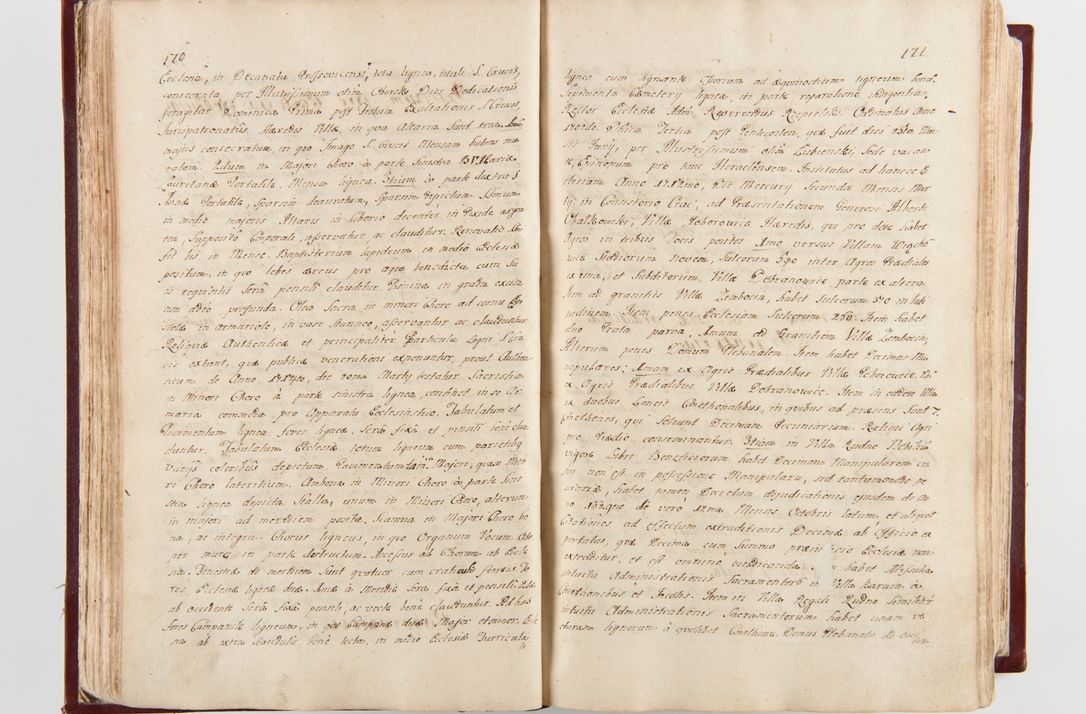 170
Ecclesia, in Decanatu Prossovicensi, tota lignea, tituli S. Crucis,
consecrata per Illustrissimum olim Oborski. Dies Dedicationis
peragitur Dominica Prima post Festum Exaltationis S. Crucis,
Jurispatronatus Haeredis Villae, in qua Altaria sunt
majus consecratum, in quo Imago S. Crucis Mensam habens mu-
ratam. 2dum in Majori Choro a parte sinistra B.V. Mariae
Lauretanae Portatile, Mensa lignea. 3tium a parte dextra S.
Annae Portatile, sparsim deauratum, sparsim depictum.
in medio majoris Altaris in Ciborio decenter, in Pixide
supposito Corporali, asservatur, ac clauditur. Renovatio
fit bis in Mense. Baptisterium lapideum in medio Ecclesiae
positum, in quo lebes aereus pro aqua benedicta cum su-
is requisitis Sera pensili clauditur. Piscina in gradu
non adeo profunda. Olea Sacra in minori Choro ad cornu
in armariolo, in vase stanneo, asservantur ac clauduntur.
Reliquiae Authenticae et principaliter Particula Ligni S. Cru-
cis extant, quae publicae venerationi exponuntur, prout Authen-
ticum de Anno, die 20ma Martij testatur. Sacristia
in Minori Choro a parte sinistra lignea, continet in se Ar-
maria commoda pro Apparatu Ecclesiastico. Tabulatum et
Pavimentum lignea, fores ligneae, sera fixa et pensili bene clau-
duntur. Tabulatum Ecclesiae totum ligneum cum parietibus
varijs coloribus depictum. Pavimentum tam in Majori, quam Mino-
ri Choro lateritium. Ambona in Minori Choro a parte Sini-
stra lignea depicta. Stalla, unum in Minori Choro, alterum
in majori ad meridiem posita, Scamna in Majori Choro bo-
na, ac integra. Chorus ligneus, in quo Organum Vocum Octo,
per mures in parte destructum. Accessus ad Chorum ab Eccle-
sia. Fenestrae ad meridiem sunt quatuor cum craticulis ferreis. Fo-
res Ecclesiae ligneae duae. Una a Meridie sera fixa et pensili.
ab occidente sera fixa pensili, ac vecte bene clauduntur. Ad has
fores Campanile ligneum, in quo Campanae duae Major et minor.
ab extra Scandulis bene tecta, in medio Ecclesiae Turricula
171
lignea cum signanti. Ossorium ad aequinoctium ligneum.
Sepimenta Cemeterij lignea, in parte reparatione indigentia.
Rector Ecclesiae Admodum Reverendus Rzepielski, Ordinatus Anno
Feria Tertia post Pentecosten, quae fuit dies 25ta Men-
sis Junij, per Illustrissimum olim Lubienski, Sede vacan-
te, Episcopum pro tunc Heracleensem. Institutus ad hancce E-
cclesiam Anno Die Mercurij Secunda Mensis Mar-
tij, in Consistorio Crac: ad Praesentationem Generosi Alberti
Chalkowski, Villae Piborowice Haeredis, qui pro dote habet
Agros in tribus locis positos Imo versus Villam
Stadiorum Novem, Sulcorum 390 inter Agros Praediales
ex una, et Subditorum Villae Petranowice parte ex altera.
Item ad granities Villae Zembocin, habet Sulcorum 370 in lati-
tudinem. Item penes Ecclesiam Sulcorum 260. Item habet
duo Prata parva. Unum ad Granitiem Villae Zembocin,
Alterum penes Domum Plebanalem. Item habet Decimas Ma-
nipulares: Imam ex Agris Praedialibus Villae Piborowice.
ex Agris Praedialibus Villae Petranowice. Item in eadem Villa
ex duobus Laneis Cmethonalibus, in quibus ad praesens sunt 7
Cmethones, qui solvunt Decimam Pecuniariam. Reliqui Agri
pro Praedio conseminantur. 3tiam in Villa Rudno Nobilis
vigore Libri Beneficiorum habet Decimam Manipularem cu-
jus non est in possessione Manipularis, sed tantummodo pe-
cuniariae, habet tamen Decretum adjudicationis ejusdem de An-
no die vero 12ma Mensis Octobris latum, et aliquot
Citationes ad effectum extraditionis Decimae ab Officio ex-
portatas, quae Decima cum summo praejudicio Ecclesiae non
extraditur, et est omnino vindicanda. habet Missalia
intuitu Administrationis Sacramentorum in Villa
Cmethonibus et Praedio. Item in Villa Regali Rudno Similiter
intuitu Administrationis Sacramentorum habet unam ve-
cturam lignorum a quolibet Cmethone. Domus Plebanalis